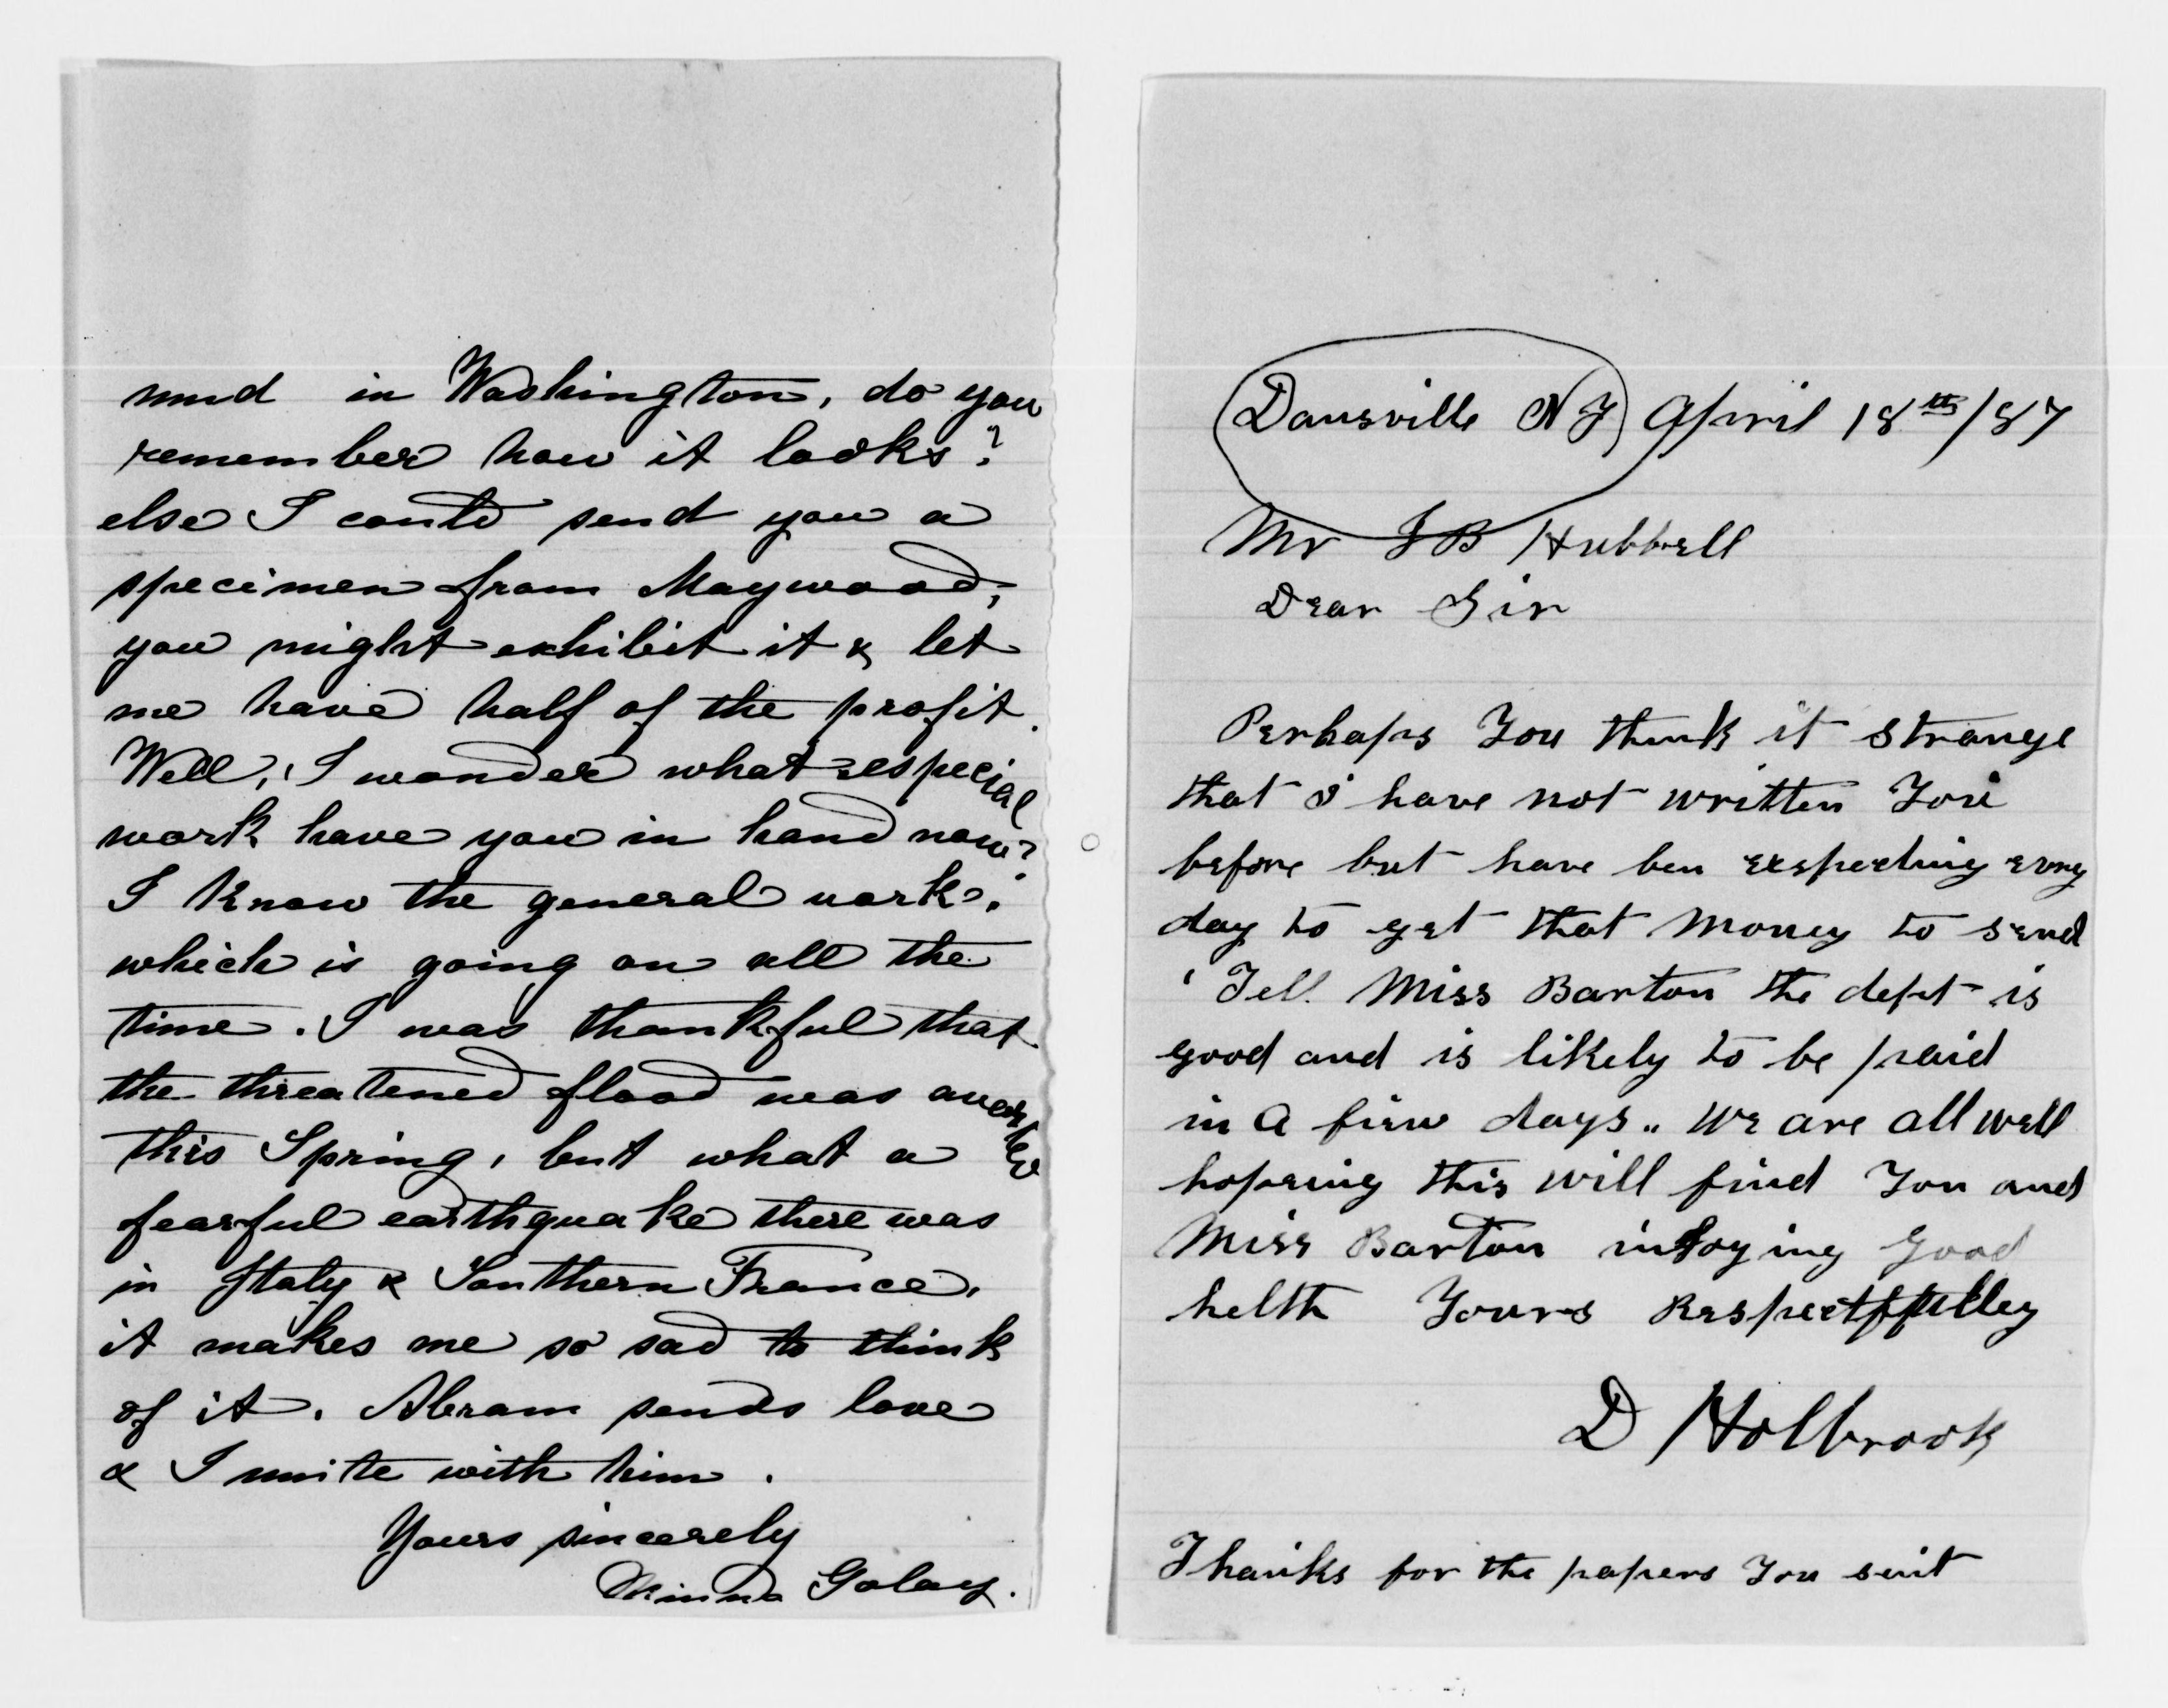 mud in Washington, do you
remember how it looks?
else I could send you a
specimen from Maywood,
you might exhibit it & let
me have half of the profit.
Well, I wonder what especial
work have you in hand now?
I know the general work,
which is going on all the
time. I was thankful that
the threatened flood was averted
this Spring, but what a
fearful earthquake there was
in Italy & Southern France.
it makes me so sad to think
of it. Abram sends love
& I unite with him.
Yours sincerely
Minna Golay.
Dansville N Y April 18th/87
Mr J B Hubbell
Dear Sir
Perhaps You think it strange
that i have not written You
before but have ben exspecting evry
day to get that money to send
Tell Miss Barton the dept is
good and is likely to be paid
in a fiew days.. We are all well
hopeing this will find You and
Miss Barton injoying good
helth Yours Respectffulley
D Holbrook
Thanks for the papers You sent